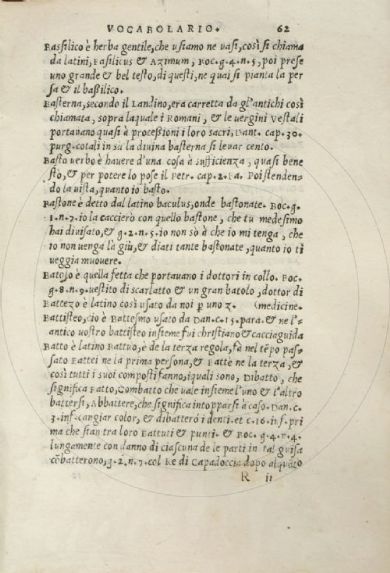 VOCABOLARIO. 62
Bassilico è herba gentile, che usiamo ne uasi, così si chiama
da latini, Basilicus & Azimum, Boc. g. 4. n. 5, poi prese
uno grande & bel testo, di questi, ne quai si pianta la per
sa & il bassilico.
Basterna, secondo il Landino, era carretta da gl'antichi così
chiamata, sopra laquale i Romani, & le uergini Vestali
portauano quasi à processioni i loro sacri, Dant. cap. 30.
purg. cotali in su la diuina basterna si leuar cento.
Basto uerbo è hauere d'una cosa à sufficienza, quasi bene
sto, & per potere lo pose il Petr. cap. 2. Fa. Poi stenden-
do la uista, quanto io basto.
Bastone è detto dal latino baculus, onde bastonate. Boc. g.
1. n. 7. io la caccierò con quello bastone, che tu medesimo
hai diuisato, & g. 2. n. 5. io non sò è che io mi tenga, che
io non uenga là giu, & diati tante bastonate, quanto io ti
ueggia muouere.
Batolo è quella fetta che portauano i dottori in collo. Boc.
g. 8. n. 9. uestito di scarlatto & un gran batolo, dottor di
Battezo è latino così usato da noi per uno z. (medicine.
Battisteo, cio è Battesimo usato da Dan. c. 15. para. & ne l'-
antico uostro battisteo insieme fui christiano & cacciaguida
Batto è latino Battuo, è de la terza regola, fè nel tēpo pas-
sato Battei ne la prima persona, & Battè ne la terza, &
così tutti i suoi composti fanno, iquali sono, Dibatto, che
significa Batto, Combatto che uale insieme l'uno & l'altro
battersi, Abbattere, che significa intopparsi à caso. Dan. c.
3. inf. cangiar color, & dibattero i denti. et c. 16. inf. pri
ma che sian tra loro Battuti & punti. & Boc. g. 4. n. 4.
lungamente con danno di ciascuna de le parti in tal guisa
cōbatterono, g. 2. n. 7. col Re di Capadoccia dopo alquāto
R ii